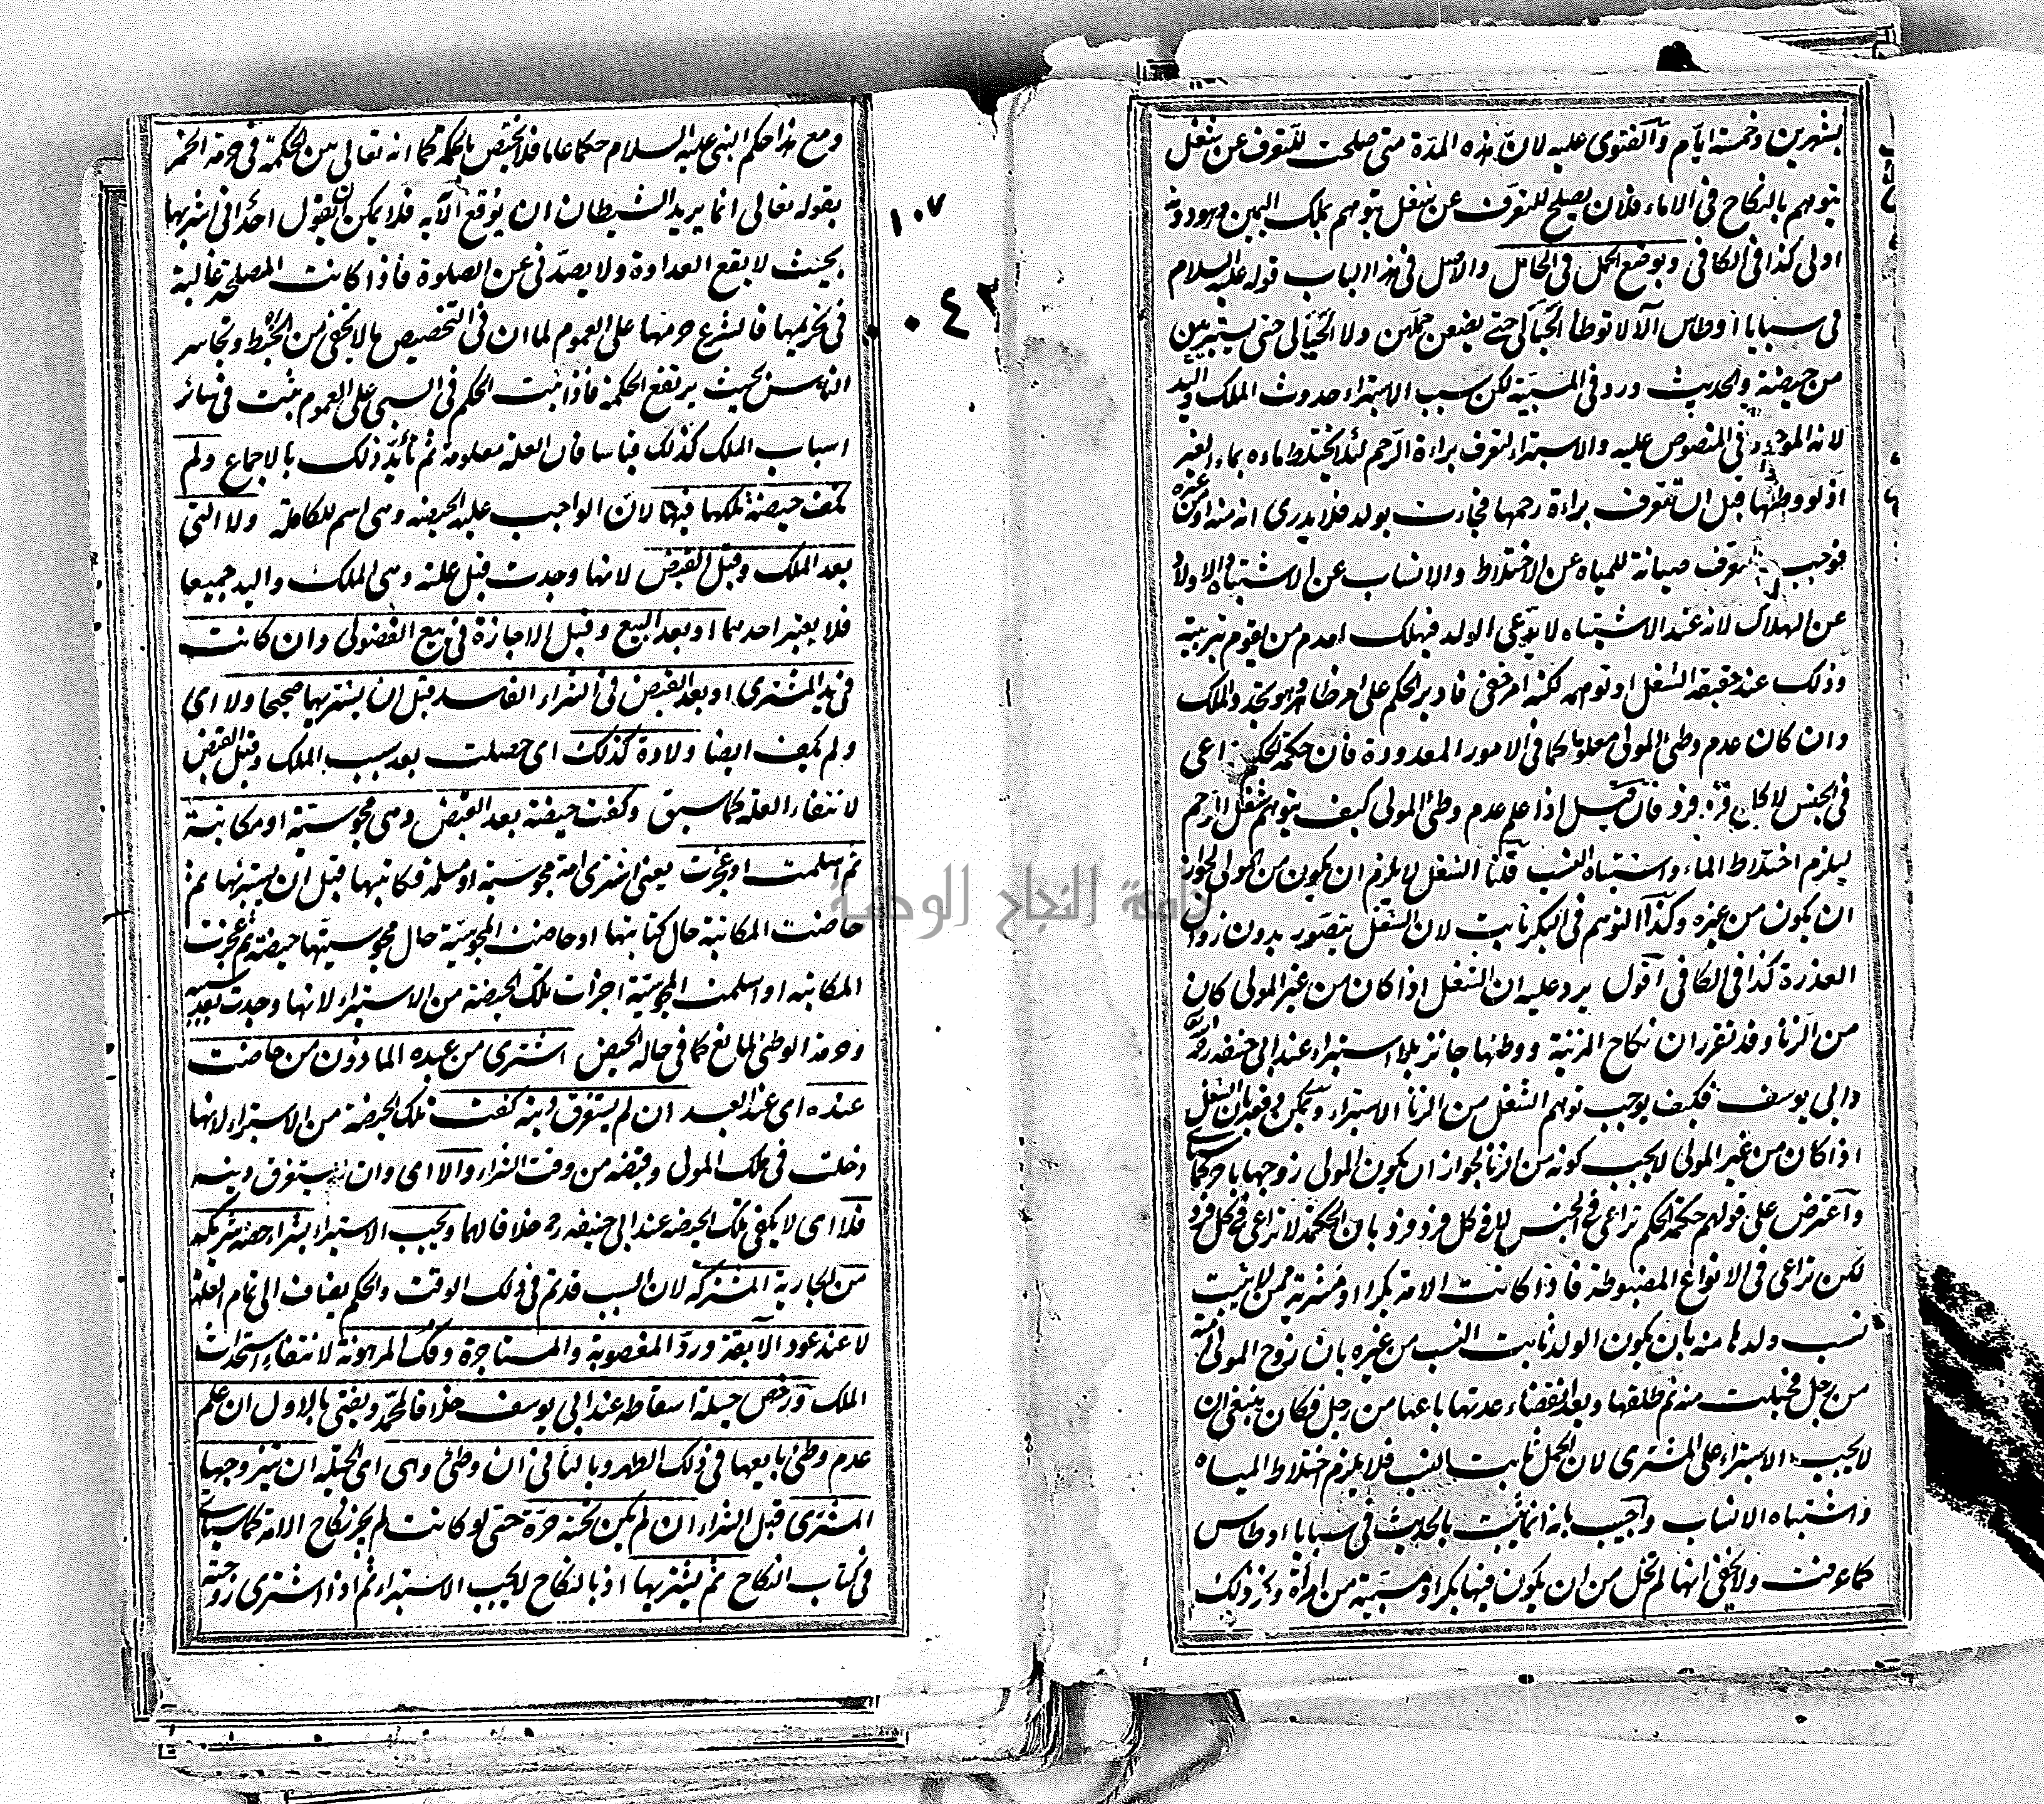 بشهرين وخمسة ايام والفتوى عليه لان هذه المدة متى صلحت للتعرف عن شغل
يتوهم بالنكاح فى الاماء فلان يصلح للتعرف عن شغل يتوهم بملك اليمين وهو دونه
اولى كذا فى الكافى وبوضع الحمل فى الحامل والاصل فى هذا الباب قوله عليه السلام
فى سبايا اوطاس الا لا توطأ الحبالى حتى يضعن حملهن ولا الحيالى حتى يستبرئين
من حيضة والحديث ورد فى المسبية لكن سبب الاستبراء حدوث الملك واليد
لانه الموجود فى المنصوص عليه والاستبراء لتعرف براءة الرحم لئلا يختلط ماءه بماء الغير
اذ لو وطئها قبل ان يتعرف براءة رحمها فجاءت بولد فلا يدرى انه منه او من غيره
فوجب التعرف صيانة للمياه عن الاختلاط والانساب عن الاشتباه والاولاد
عن الهلاك لانه عند الاشتباه لا يدعى الولد فيهلك لعدم من يقوم بتربيته
وذلك عند حقيقة الشغل او توهمه لكنه امر خفى فادير الحكم على امر ظاهر وهو تجدد الملك
وان كان عدم وطئ المولى معلوما كما فى الامور المعدودة فان حكمة الحكم تراعى
فى الجنس لا كل فرد فرد فان قيل اذا علم عدم وطئ المولى كيف يتوهم شغل الرحم
ليلزم اختلاط الماء واشتباه النسب قلنا الشغل لا يلزم ان يكون من المولى لجواز
ان يكون من غيره وكذا التوهم فى البكر ثابت لان الشغل يتصور بدون زوال
العذرة كذا فى الكافى اقول يرد عليه ان الشغل اذا كان من غير المولى كان
من الزنا وقد تقرر ان نكاح المزنية ووطئها جائز بلا استبراء عند ابى حنيفة
وابى يوسف فكيف يوجب توهم الشغل من الزنا الاستبراء ويمكن دفعه بان الشغل
اذا كان من غير المولى لا يجب كونه من الزنا لجواز ان يكون المولى زوجها باخر كما سيأتى
واعترض على قولهم حكمة الحكم تراعى فى الجنس لا فى كل فرد فرد بان الحكمة لا تراعى فى كل فرد
لكن تراعى فى الانواع المضبوطة فاذا كانت الامة بكرا او مشرية ممن لا يثبت
نسب ولدها منه بان يكون الولد ثابت النسب من غيره بان زوج المولى امته
من رجل فحبلت منه ثم طلقها وبعد انقضاء عدتها باعها من رجل فكان ينبغى ان
لا يجب الاستبراء على المشترى لان الحمل ثابت النسب فلا يلزم اختلاط المياه
واشتباه الانساب واجيب بانه انما يثبت بالحديث فى سبايا اوطاس
كما عرفت ولا يخفى انها لم تخل من ان يكون فيها بكر او مسبية من امرأة ونحو ذلك
ومع هذا حكم النبى عليه السلام حكما عاما فلا يختص بالحكمة كما انه تعالى بين الحكمة فى حرمة الخمر
بقوله تعالى انما يريد الشيطان ان يوقع الآية فلا يمكن ان يقول احد انى اشربها
بحيث لا يقع العداوة ولا يصدنى عن الصلوة فاذا كانت المصلحة غالبة
فى تحريمها فالشرع حرمها على العموم لما ان فى التخصيص ما لا يخفى من الخبط وتجاسر
الناس بحيث يرتفع الحكمة فاذا ثبت الحكم فى السبى على العموم يثبت فى سائر
اسباب الملك كذلك قياسا فان العلة معلومة ثم تأيد ذلك بالاجماع ولم
تكف حيضة ملكها فيها لان الواجب عليه الحيضة وهى اسم للكاملة ولا التى
بعد الملك وقبل القبض لانها وجدت قبل علته وهى الملك واليد جميعا
فلا يعتبر احدهما او بعد البيع وقبل الاجازة فى بيع الفضولى وان كانت
فى يد المشترى او بعد القبض فى الشراء الفاسد قبل ان يشتريها صحيحا ولا اى
ولم تكف ايضا ولادة كذلك اى حصلت بعد سبب الملك وقبل القبض
لانتفاء العلة كما سبق وكفت حيضة بعد القبض وهى مجوسية او مكاتبة
ثم اسلمت او عجزت يعنى اشترى امة مجوسية او مسلمة فكاتبها قبل ان يستبرئها ثم
حاضت المكاتبة حال كتابتها او حاضت المجوسية حال مجوسيتها حيضة ثم عجزت
المكاتبة او اسلمت المجوسية اجزأت تلك الحيضة من الاستبراء لانها وجدت بعد سببه
وحرمة الوطئ لمانع كما فى حالة الحيض اشترى من عبده المأذون من حاضت
عنده اى عند العبد ان لم يستغرق دينه كفت تلك الحيضة من الاستبراء لانها
دخلت فى ملك المولى وقبضه من وقت الشراء والا اى وان استغرق دينه
فلا اى لا يكفى تلك الحيضة عند ابى حنيفة رح خلافا لهما ويجب الاستبراء بشراء حصة شريكه
من الجارية المشتركة لان السبب قد تم فى ذلك الوقت والحكم يضاف الى تمام العلة
لا عند عود الآبقة ورد المغصوبة والمستأجرة وفك المرهونة لانتفاء استحداث
الملك ورخص حيلة اسقاطه عند ابى يوسف خلافا لمحمد ويفتى بالاول ان علم
عدم وطئ بايعها فى ذلك الطهر وبالثانى ان وطئ وهى اى الحيلة ان يتزوجها
المشترى قبل الشراء ان لم يكن تحته حرة حتى لو كانت لم يجز نكاح الامة كما سيأتى
فى كتاب النكاح ثم يشتريها اذ بالنكاح لا يجب الاستبراء ثم اذا اشترى زوجته
١٠٧